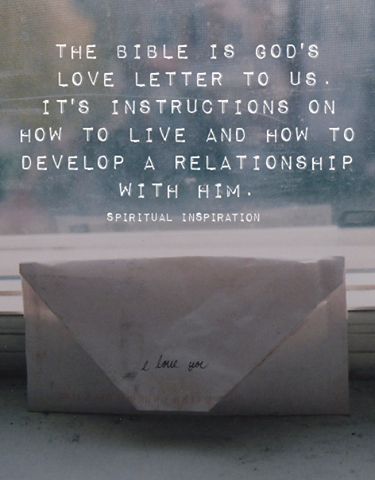 THE BIBLE IS GOD'S
LOVE LETTER TO US.
IT'S INSTRUCTIONS ON
HOW TO LIVE AND HOW TO
DEVELOP A RELATIONSHIP
WITH HIM.
SPIRITUAL INSPIRATION
i love you